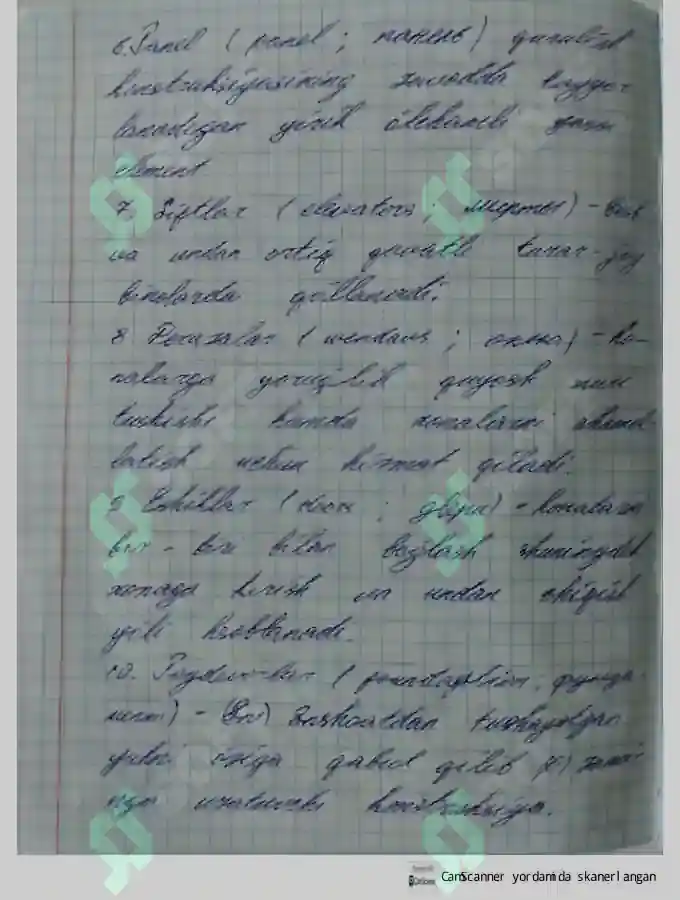 6. Panel (panel; панель) qurulish
konstruksiyasining zavodda tayyor
lanadigan yirik ölchamli yassi
element
7. Liftlar (elevators; лифты) – besh
va undan ortiq qavatli turar-joy
binolarda qöllanadi.
8. Derazalar (windows; окна) – xo-
nalarga yorug'lik quyosh nuri
tushishi hamda xonalarni shamol-
latish uchun hizmat qiladi.
9. Eshiklar (door; двери) – honalarni
bir-biri bilan boğlash shuningdek
xonaga kirish va undan chiqish
yöli hisoblanadi.
10. Poydevorlar (foundation; фунда-
мент) – Inshoatdan tushayotgan
yukni öziga qabul qilib zami-
niga uzatuvchi konstruksiya.
CamScanner yordamida skanerlangan